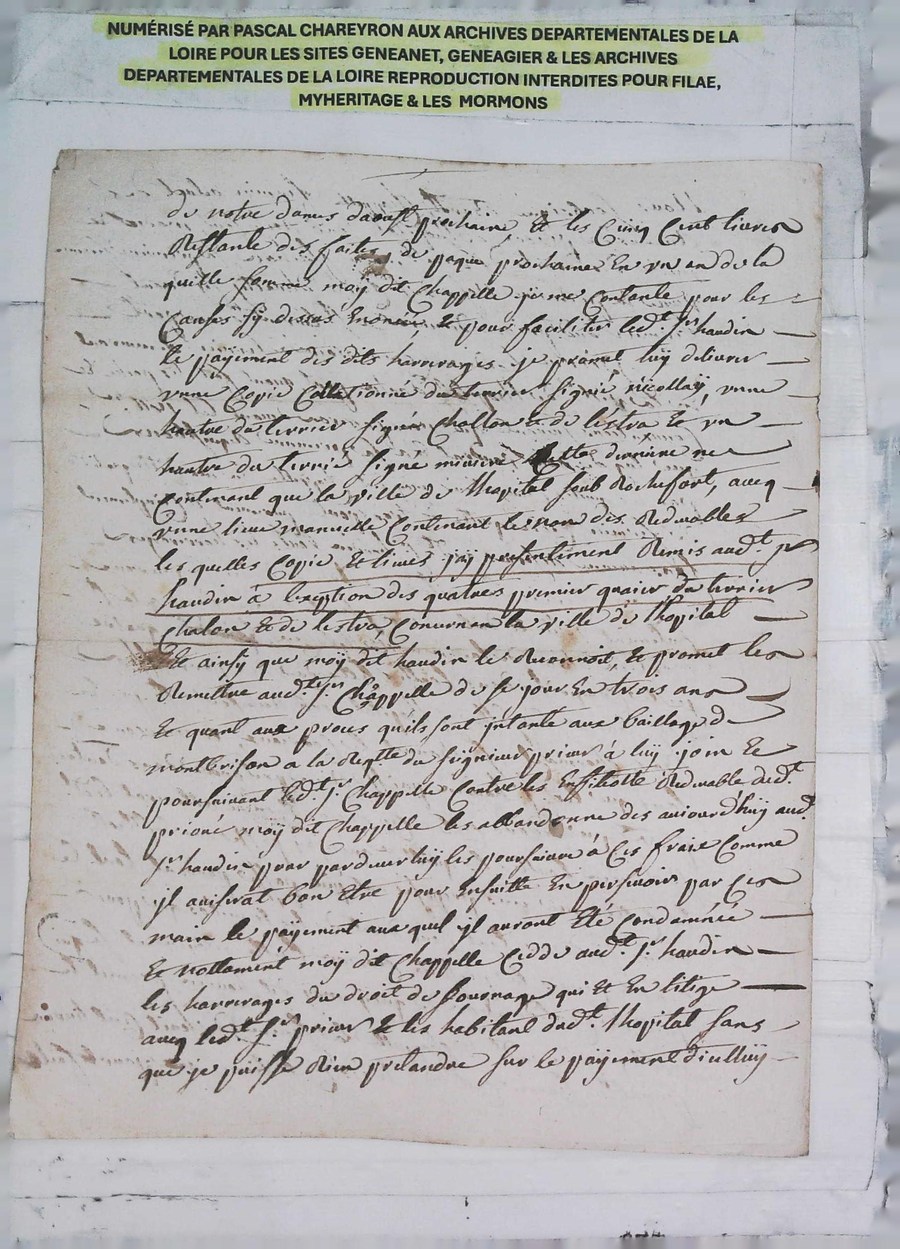 NUMÉRISÉ PAR PASCAL CHAREYRON AUX ARCHIVES DEPARTEMENTALES DE LA
LOIRE POUR LES SITES GENEANET, GENEAGIER & LES ARCHIVES
DEPARTEMENTALES DE LA LOIRE REPRODUCTION INTERDITES POUR FILAE,
MYHERITAGE & LES MORMONS
de notre dames daoust prochaine, et les Cinq Cent livres
Restante des faites de paque prochaines En un an de la
quelle somme moÿ dit Chappelle je me Contante pour les
Causes sÿ dessus Enoncée et pour faciliter led.t S.r haudin
le paÿement des dits harrerages je promet luÿ delivrer
vune Copie Collationné du terrier signé nicollaÿ, vune
hautre du terrier signé Challon et de lestra Et un
hautre du terrié signé miviere Cette derniere ne
Contenant que la ville de lhopital soub Rochefort, avecq
vune lieve manuelle Contenant le nom des Redevables
les quelles Copie et lieves jaÿ presentement Remis aud.t S.r
haudin à lexeption des quatres premier quaier du terrier
Chalon et de lestra, Concernan la ville de lhopital
Et ainsÿ que moÿ dit haudin le Reconnoit, et promet les
Remettre aud.t S.r Chappelle de se jour En trois ans
Et quant aux proces quils sont intanté aux Bailliage de
montbrison a la Reqtte du seigneur prieur à luÿ join Et
poursuivant led.t S.r Chappelle Contre les Enfiteotte Redevable dud.t
prioné moÿ dit Chappelle les abbandonne des aujourd'huÿ aud.t
S.r haudin pour pardever luÿ les poursuivre à Ces fraix Comme
jl avisérat bon Etre pour Ensuitte En persevoir par Ces
main le paÿement aux quel jl auront Eté Condamnée
Et nottament moÿ dit Chappelle Cedde aud.t S.r haudin
les harrerages du droit de fournage qui Et En litige
avecq led.t S.r prieur et les habitant dud.t lhopital sans
que je puisse Rien pretandre sur le paÿement d'icelluÿ